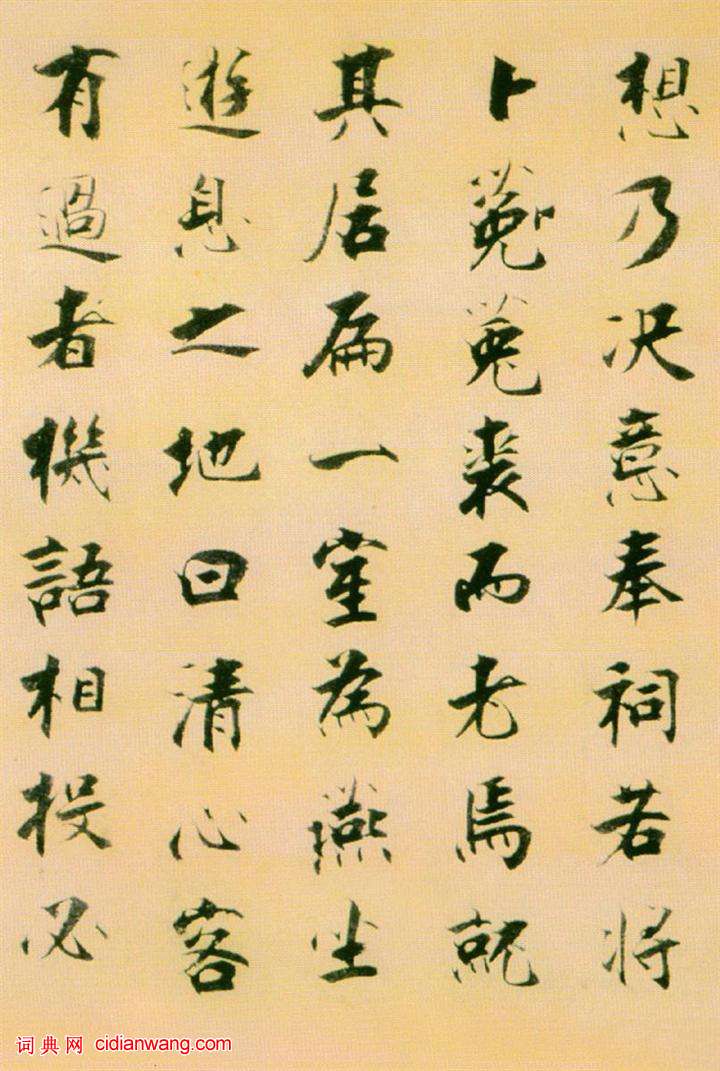 想乃决意奉祠若将
卜菟菟裘而老焉就
其居扁一室為燕坐
遊息之地曰清心客
有過者機語相投必
词典网 cidianwang.com